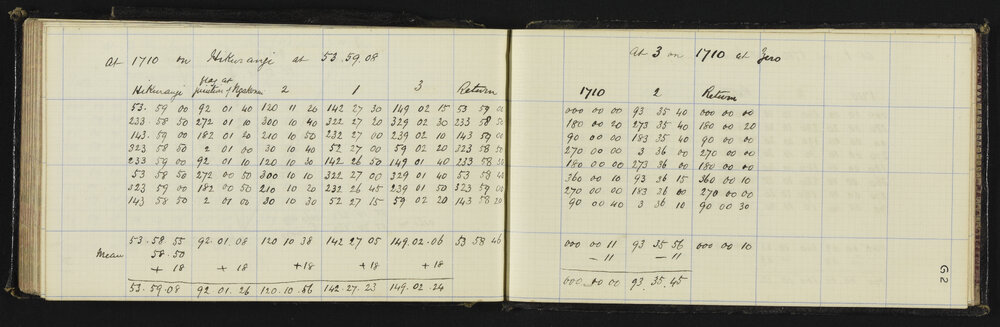 At 1710 on Hikurangi at 53.59.08
Hikurangi flag at junction of 2 1 3 Return
53. 59 00 92 01 40 120 11 20 142 27 30 149 02 15 53 59 00
233. 58 50 272 01 10 300 10 40 322 27 20 329 02 30 233 58 50
143. 59 00 182 01 20 210 10 50 232 27 00 239 02 10 143 59 00
323 58 50 2 01 00 30 10 40 52 27 00 59 02 20 323 58 50
233 59 00 92 01 10 120 10 30 142 26 50 149 01 40 233 58 30
53 58 50 272 00 50 300 10 10 322 27 00 329 01 40 53 58 40
323 59 00 182 00 50 210 10 20 232 26 45 239 01 50 323 59 00
143 58 50 2 01 00 30 10 30 52 27 15 59 02 20 143 58 20
53.58 55 92.01.08 120 10 38 142 27 05 149.02.06 53 58 46
Mean 58.50
+ 18 + 18 +18 +18 +18
53.59.08 92.01.26 120.10.56 142.27.23 149.02.24
At 3 on 1710 at Zero
1710 2 Return
000 00 00 93 35 40 000 00 00
180 00 00 273 35 40 180 00 20
90 00 00 183 35 40 90 00 00
270 00 00 3 36 00 270 00 00
180 00 00 273 36 00 180 00 00
360 00 10 93 36 15 360 00 10
270 00 00 183 36 00 270 00 00
90 00 40 3 36 10 90 00 30
000 00 11 93 35 56 000 00 10
— 11 — 11
000.00 00 93.35.45
62